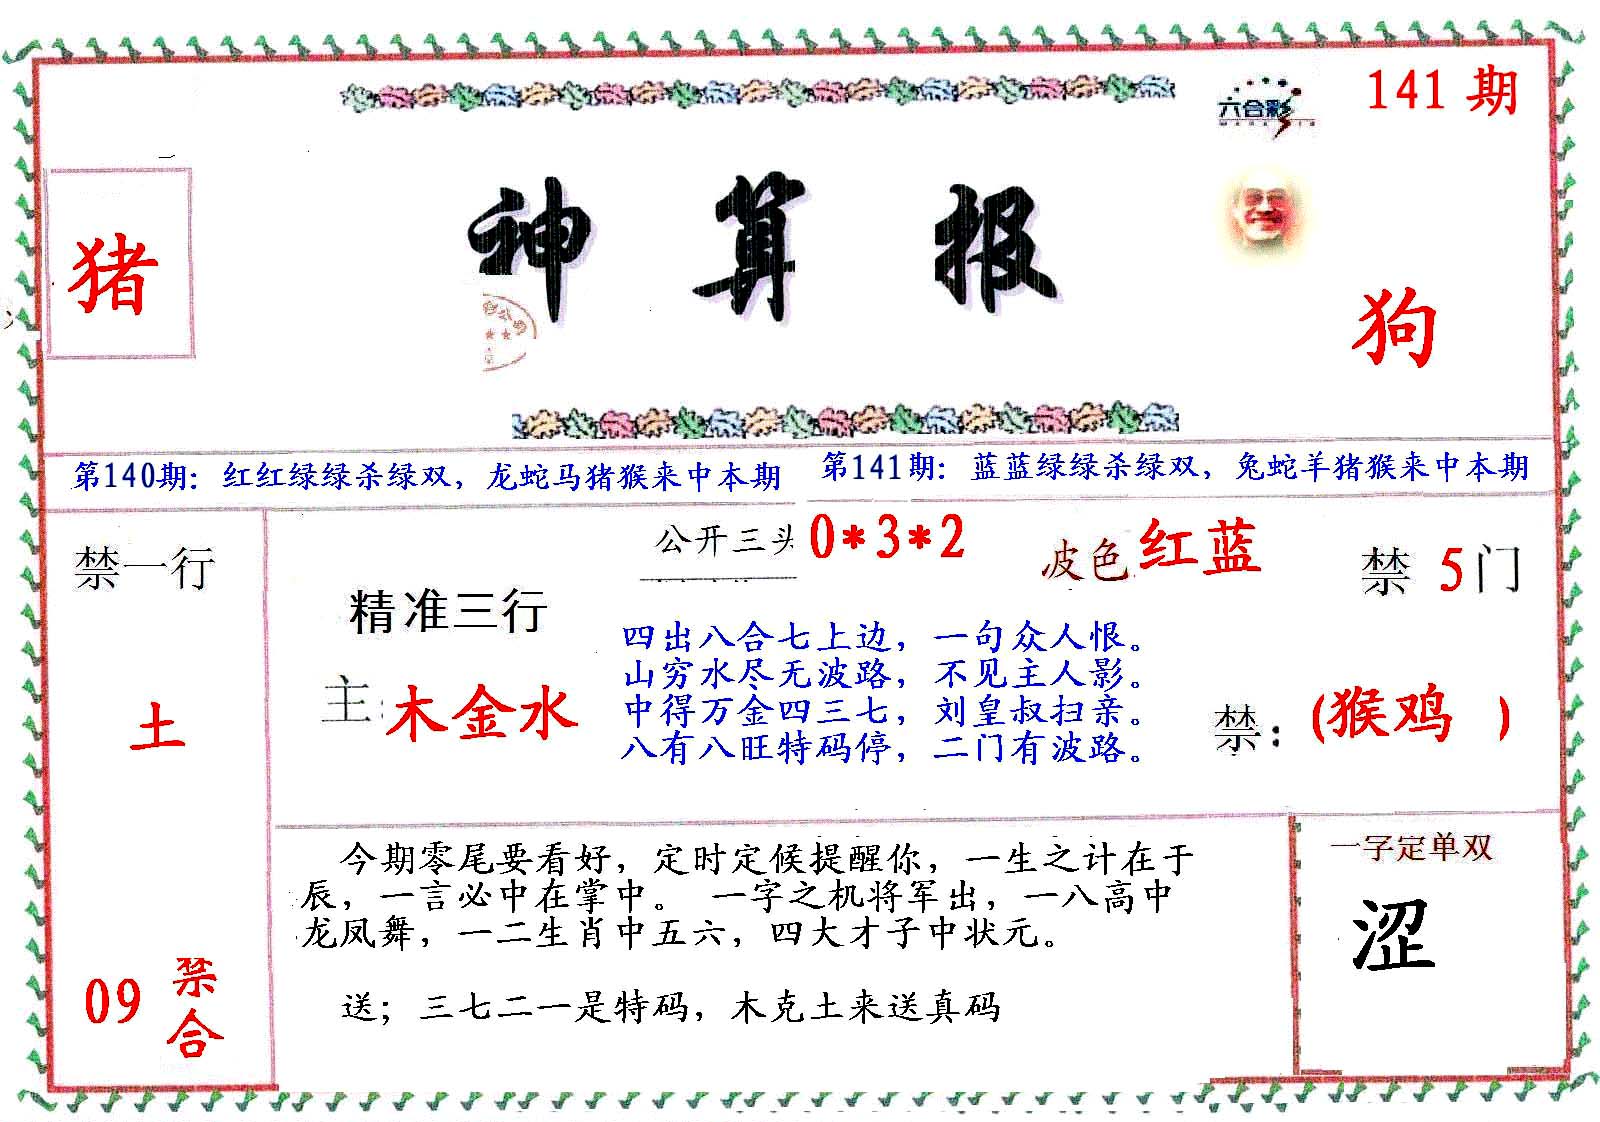 141 期
六合彩
神算报
猪
狗
第140期：红红绿绿杀绿双，龙蛇马猪猴来中本期
第141期：蓝蓝绿绿杀绿双，兔蛇羊猪猴来中本期
禁一行
土
09 禁合
公开三头 0*3*2
波色 红蓝
禁 5 门
精准三行
主: 木金水
四出八合七上边，一句众人恨。
山穷水尽无波路，不见主人影。
中得万金四三七，刘皇叔扫亲。
八有八旺特码停，二门有波路。
禁: (猴鸡 )
今期零尾要看好，定时定候提醒你，一生之计在于
辰，一言必中在掌中。 一字之机将军出，一八高中
龙凤舞，一二生肖中五六，四大才子中状元。
送；三七二一是特码，木克土来送真码
一字定单双
涩